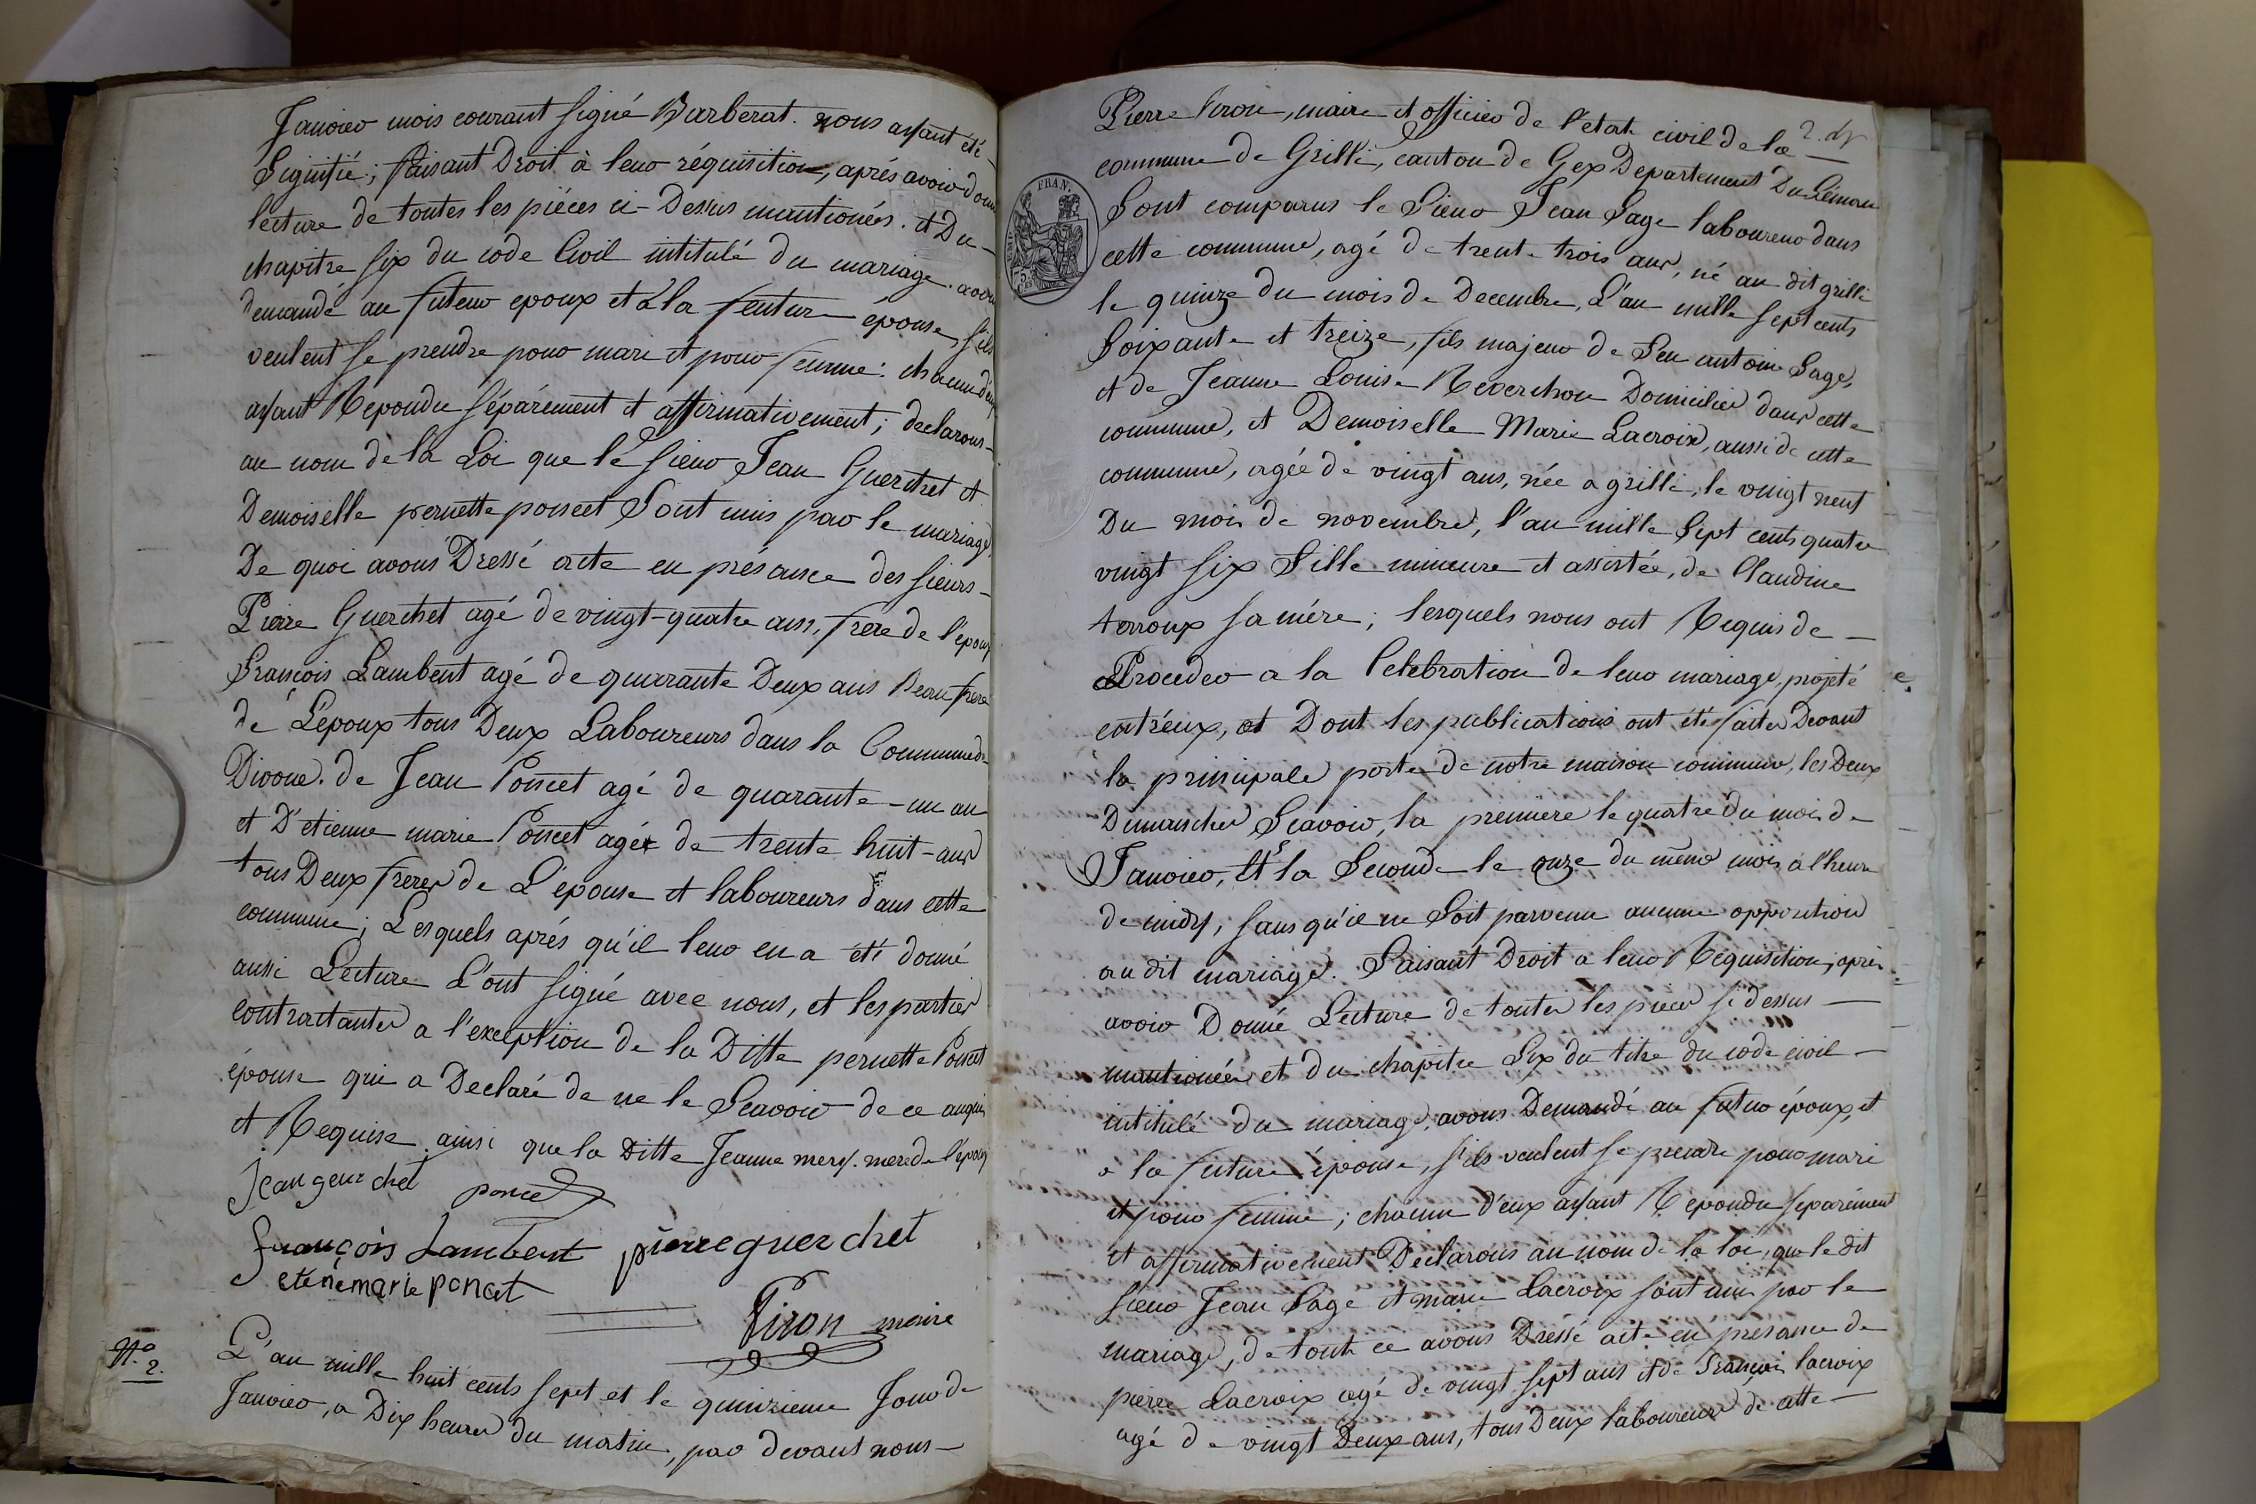 Janvier mois courant signé Barberat. nous ayant été
Signifié; faisant Droit à leur réquisition, aprés avoir donné
lecture de toutes les piéces ci-Dessus mantionées. et Du
chapitre six du code Civil intitulé du mariage. avons
demandé au futeur epoux et à la feuture épouse, s'ils
veulent se prendre pour mari et pour femme: chacun d'eux
ayant Repondu séparément et affirmativement; declarons
au nom de la Loi que le sieur Jean Guerchet et
Demoiselle pernette poncet Sont unis par le mariage,
De quoi avons Dressé acte en présance des sieurs
Pierre Guerchet agé de vingt-quatre ans, frere de l'époux
François Lambert agé de quarante Deux ans Beau frere
de L'époux tous Deux Laboureurs dans la Commune de
Divone. de Jean Poncet agé de quarante-un an
et D'etienne marie Poncet agé de trente huit-ans
tous Deux freres de L'épouse et laboureurs dans cette
commune; Lesquels aprés qu'il leur en a été donné
aussi Lecture L'ont signé avec nous, et les parties
contractantes a l'exception de la Ditte pernette Poncet
épouse qui a Declaré de ne le Scavoir de ce enquis
et Requise ainsi que la Ditte Jeanne mery. mere de l'époux
Jean guerchet poncet
françois Lambert pierre guerchet
etiene marie poncet
Piron maire
N.o 2. L'an mille huit cents sept et le quinzieme Jour de
Janvier, a Dix heures du matin, par devant nous
2. dr
Pierre Piron, maire et officier de l'état civil de la
commune de Grilli, canton de Gex Departement Du Léman
Sont comparus le Sieur Jean Sage laboureur dans
cette commune, agé de trente trois ans, né au dit grilli
le quinze du mois de Decembre, L'an mille sept cents
Soixante et treize, fils majeur de feu antoine Sage,
FRAN.
et de Jeanne Louise Reverchon Domicilié dans cette
commune, et Demoiselle Marie Lacroix, aussi de cette
commune, agée de vingt ans, née a grilli, le vingt neuf
Du mois de novembre, l'an mille Sept cents quatre
vingt six Fille mineure et assistée, de Claudine
terroux sa mére; lesquels nous ont Requis de
Proceder a la Celebration de leur mariage, projeté
entr'eux, et Dont les publications ont étés faites Devant
la principale porte de notre maison commune, les Deux
Dimanches Scavoir, la premiere le quatre du mois de
Janvier, et la Seconde le onze du même mois a l'heure
de midy, sans qu'il ne Soit parvenu aucune opposition
au dit mariage. Faisant Droit a leur Réquisition, aprés
avoir Donné Lecture de toutes les pieces si dessus
mantionées et du chapitre Six du titre du code civil
intitulé du mariage, avons Demandé au futur époux, et
a la future épouse, s'ils veulent se prendre pour mari
et pour femme; chacun d'eux ayant Repondu separément
et affirmativement Declarons au nom de la loi, que le dit
sieur Jean Sage et marie Lacroix sont unis par le
mariage, de tout ce avons Dressé acte en presance de
pierre Lacroix agé de vingt sept ans et de François lacroix
agé de vingt Deux ans, tous Deux laboureurs de cette